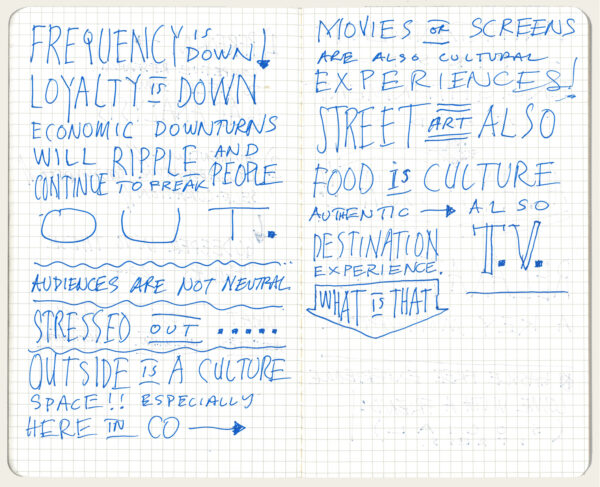 FREQUENCY IS DOWN!
LOYALTY IS DOWN
ECONOMIC DOWNTURNS
WILL RIPPLE AND
CONTINUE TO FREAK PEOPLE
OUT.
AUDIENCES ARE NOT NEUTRAL.
STRESSED OUT .....
OUTSIDE IS A CULTURE
SPACE!! ESPECIALLY
HERE IN CO →
MOVIES OR SCREENS
ARE ALSO CULTURAL
EXPERIENCES!
STREET ART ALSO
FOOD IS CULTURE
AUTHENTIC → ALSO
DESTINATION T.V.
EXPERIENCE.
WHAT IS THAT